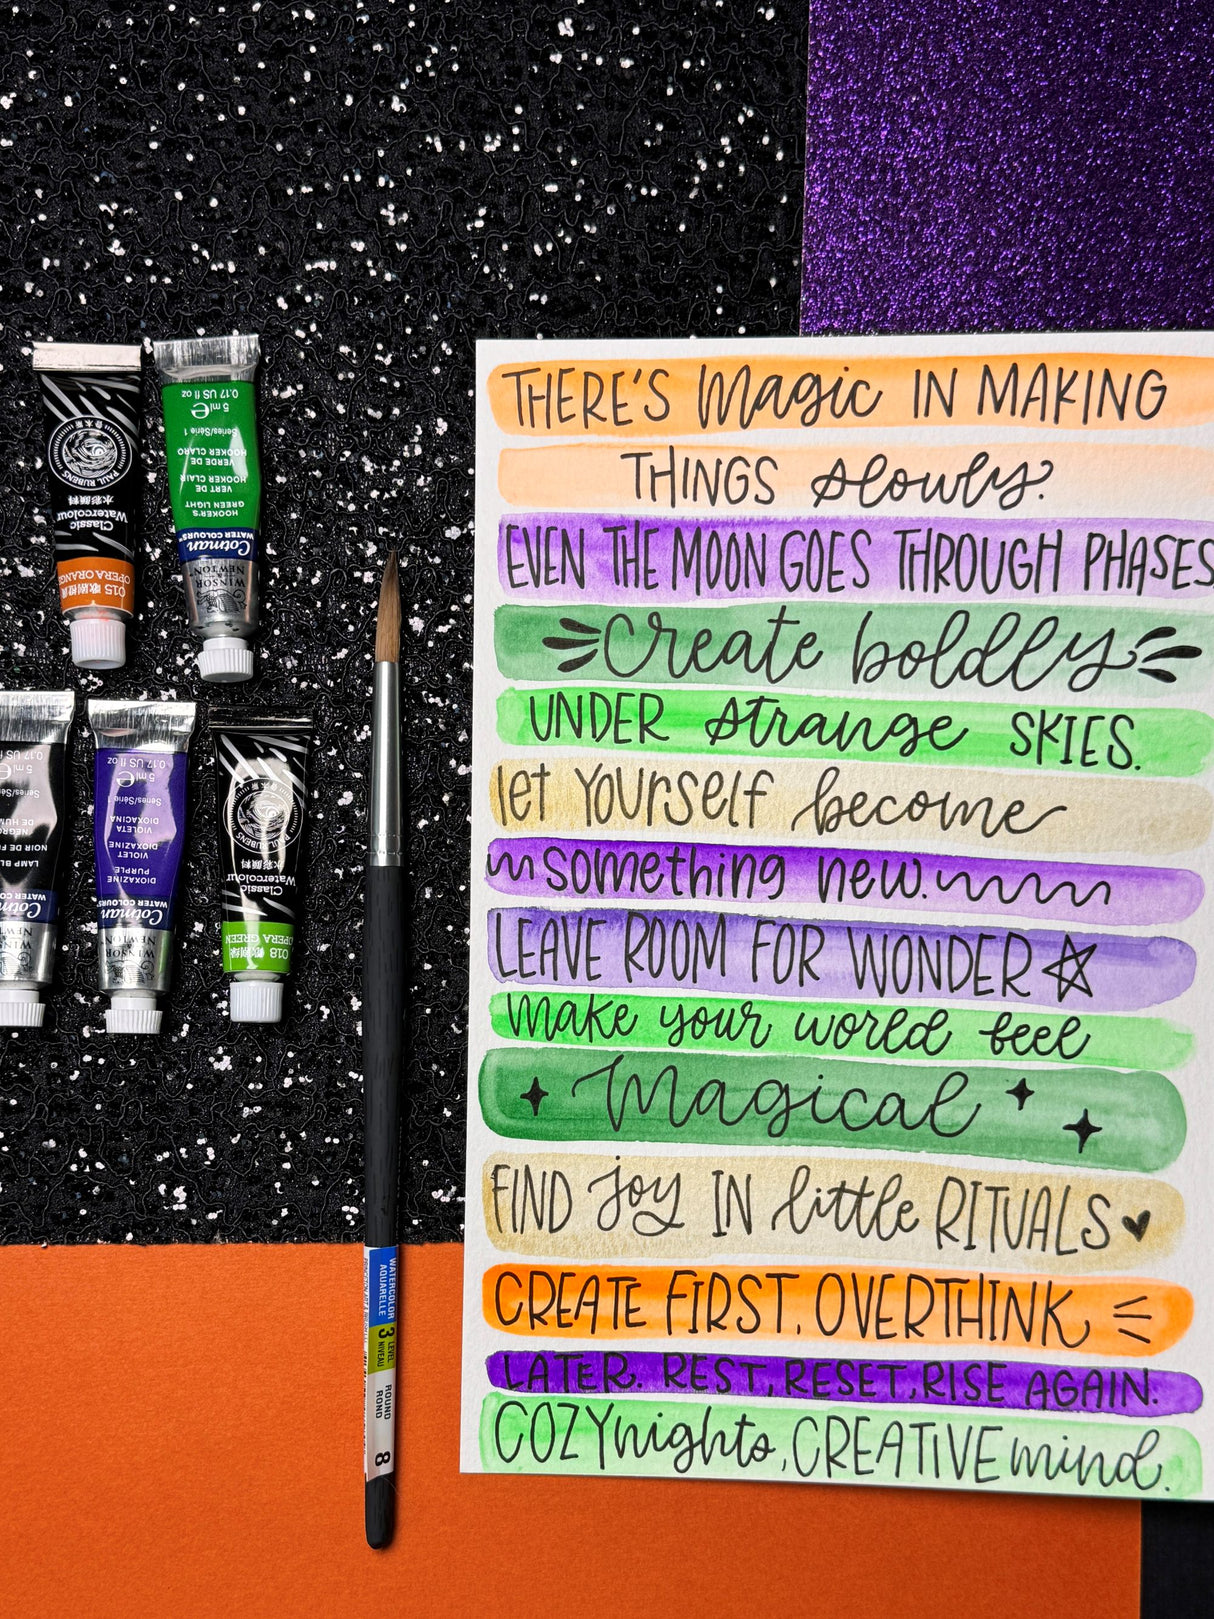 THERE'S Magic IN MAKING
THINGS slowly.
EVEN THE MOON GOES THROUGH PHASES
Create boldly
UNDER strange SKIES.
let YOURSELF become
something new.
LEAVE ROOM FOR WONDER
make your world feel
Magical
FIND joy IN little RITUALS
CREATE FIRST, OVERTHINK
LATER. REST, RESET, RISE AGAIN.
COZY nights, CREATIVE mind.
PAUL RUBENS
水彩颜料
Classic
Watercolour
OPERA ORANGE
Q15
5 ml e
0.17 US fl oz
Series/Série 1
HOOKER CLARO
VERDE DE
HOOKER CLAIR
VERT DE
GREEN LIGHT
HOOKER'S
WATER COLOURS™
Cotman
WINSOR
& NEWTON™
0.17 US fl oz
5 ml e
Series/Série 1
DE HUM
NEGRO
NOIR DE F
LAMP BL
WATER CO
Co
WIN
NEW
0.17 US fl oz
5 ml e
Series/Série 1
DIOXACINA
VIOLETA
DIOXAZINE
VIOLET
PURPLE
DIOXAZINE
WATER COLOURS™
Cotman
WINSOR
& NEWTON™
PAUL RUBENS
水彩颜料
Classic
Watercolour
OPERA GREEN
Q18
WATERCOLOR
AQUARELLE
3 LEVEL
NIVEAU
ROUND
ROND
8